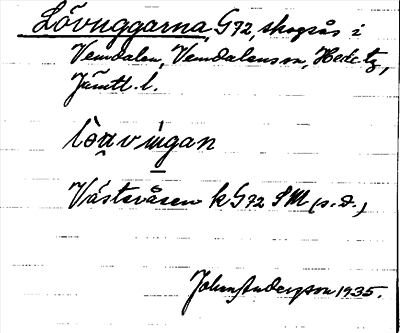 Lövuggarna, G72, skogsås i
Vemdalen, Vemdalens sn, Hede tg,
Jämtl. l.
Västeråsen k G72 SM (s.d.)
John Anderson 1935.